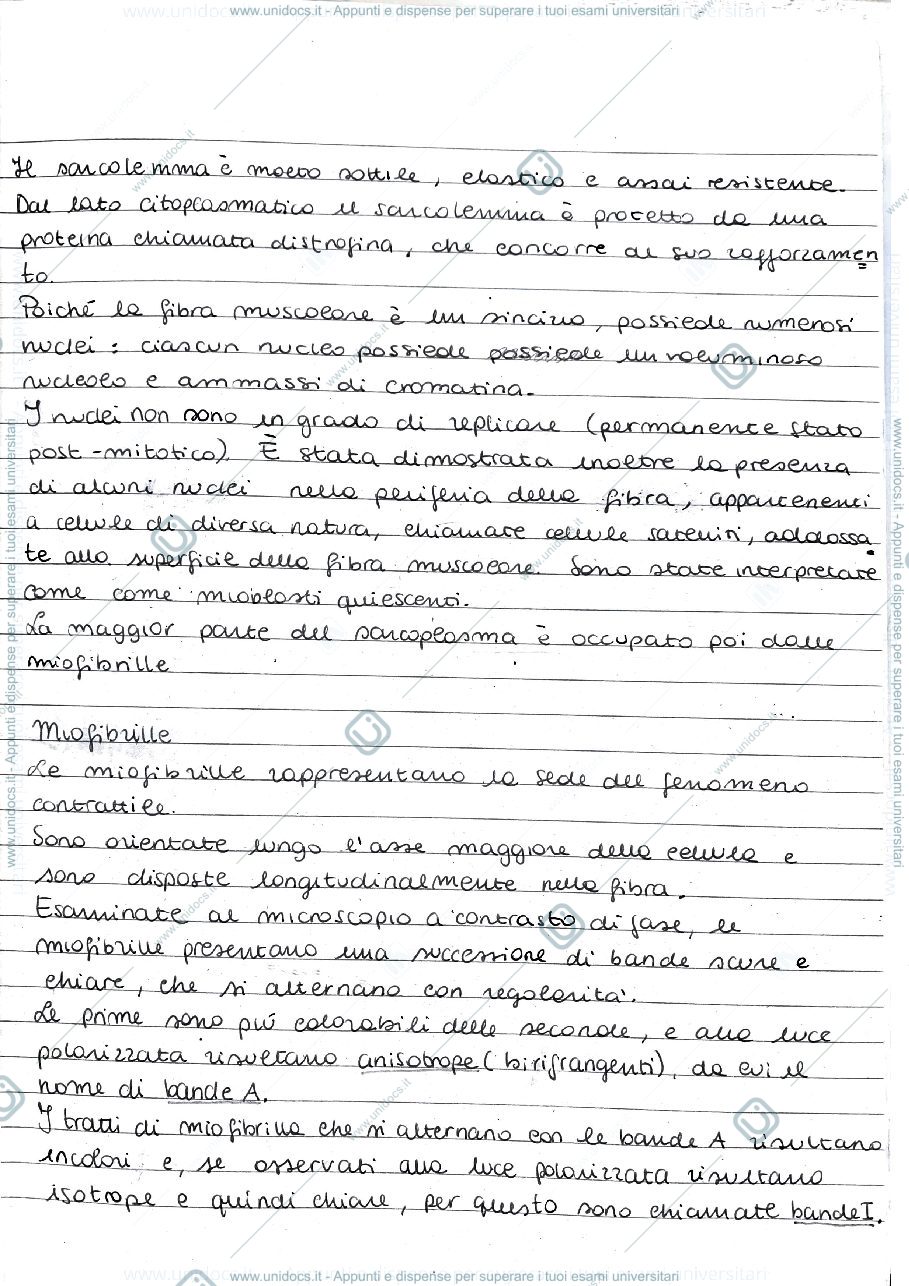 www.unidocs.it - Appunti e dispense per superare i tuoi esami universitari
Il sarcolemma è molto sottile, elastico e assai resistente.
Dal lato citoplasmatico il sarcolemma è protetto da una
proteina chiamata distrofina, che concorre al suo rafforzamen
to.
Poiché la fibra muscolare è un sincizio, possiede numerosi
nuclei: ciascun nucleo possiede possiede un voluminoso
nucleolo e ammassi di cromatina.
I nuclei non sono in grado di replicare (permanente stato
post-mitotico). È stata dimostrata inoltre la presenza
di alcuni nuclei nella periferia della fibra, appartenenti
a cellule di diversa natura, chiamate cellule satelliti, addossa
te alla superficie della fibra muscolare. Sono state interpretate
come come mioblasti quiescenti.
La maggior parte del sarcoplasma è occupato poi dalle
miofibrille
Miofibrille
Le miofibrille rappresentano la sede del fenomeno
contrattile.
Sono orientate lungo l'asse maggiore della cellula e
sono disposte longitudinalmente nella fibra.
Esaminate al microscopio a contrasto di fase, le
miofibrille presentano una successione di bande scure e
chiare, che si alternano con regolarità.
Le prime sono più colorabili delle seconde, e alla luce
polarizzata risultano anisotrope (birifrangenti), da cui il
nome di bande A.
I tratti di miofibrilla che si alternano con le bande A risultano
incolori e, se osservati alla luce polarizzata risultano
isotrope e quindi chiare, per questo sono chiamate bande I.
www.unidocs.it - Appunti e dispense per superare i tuoi esami universitari